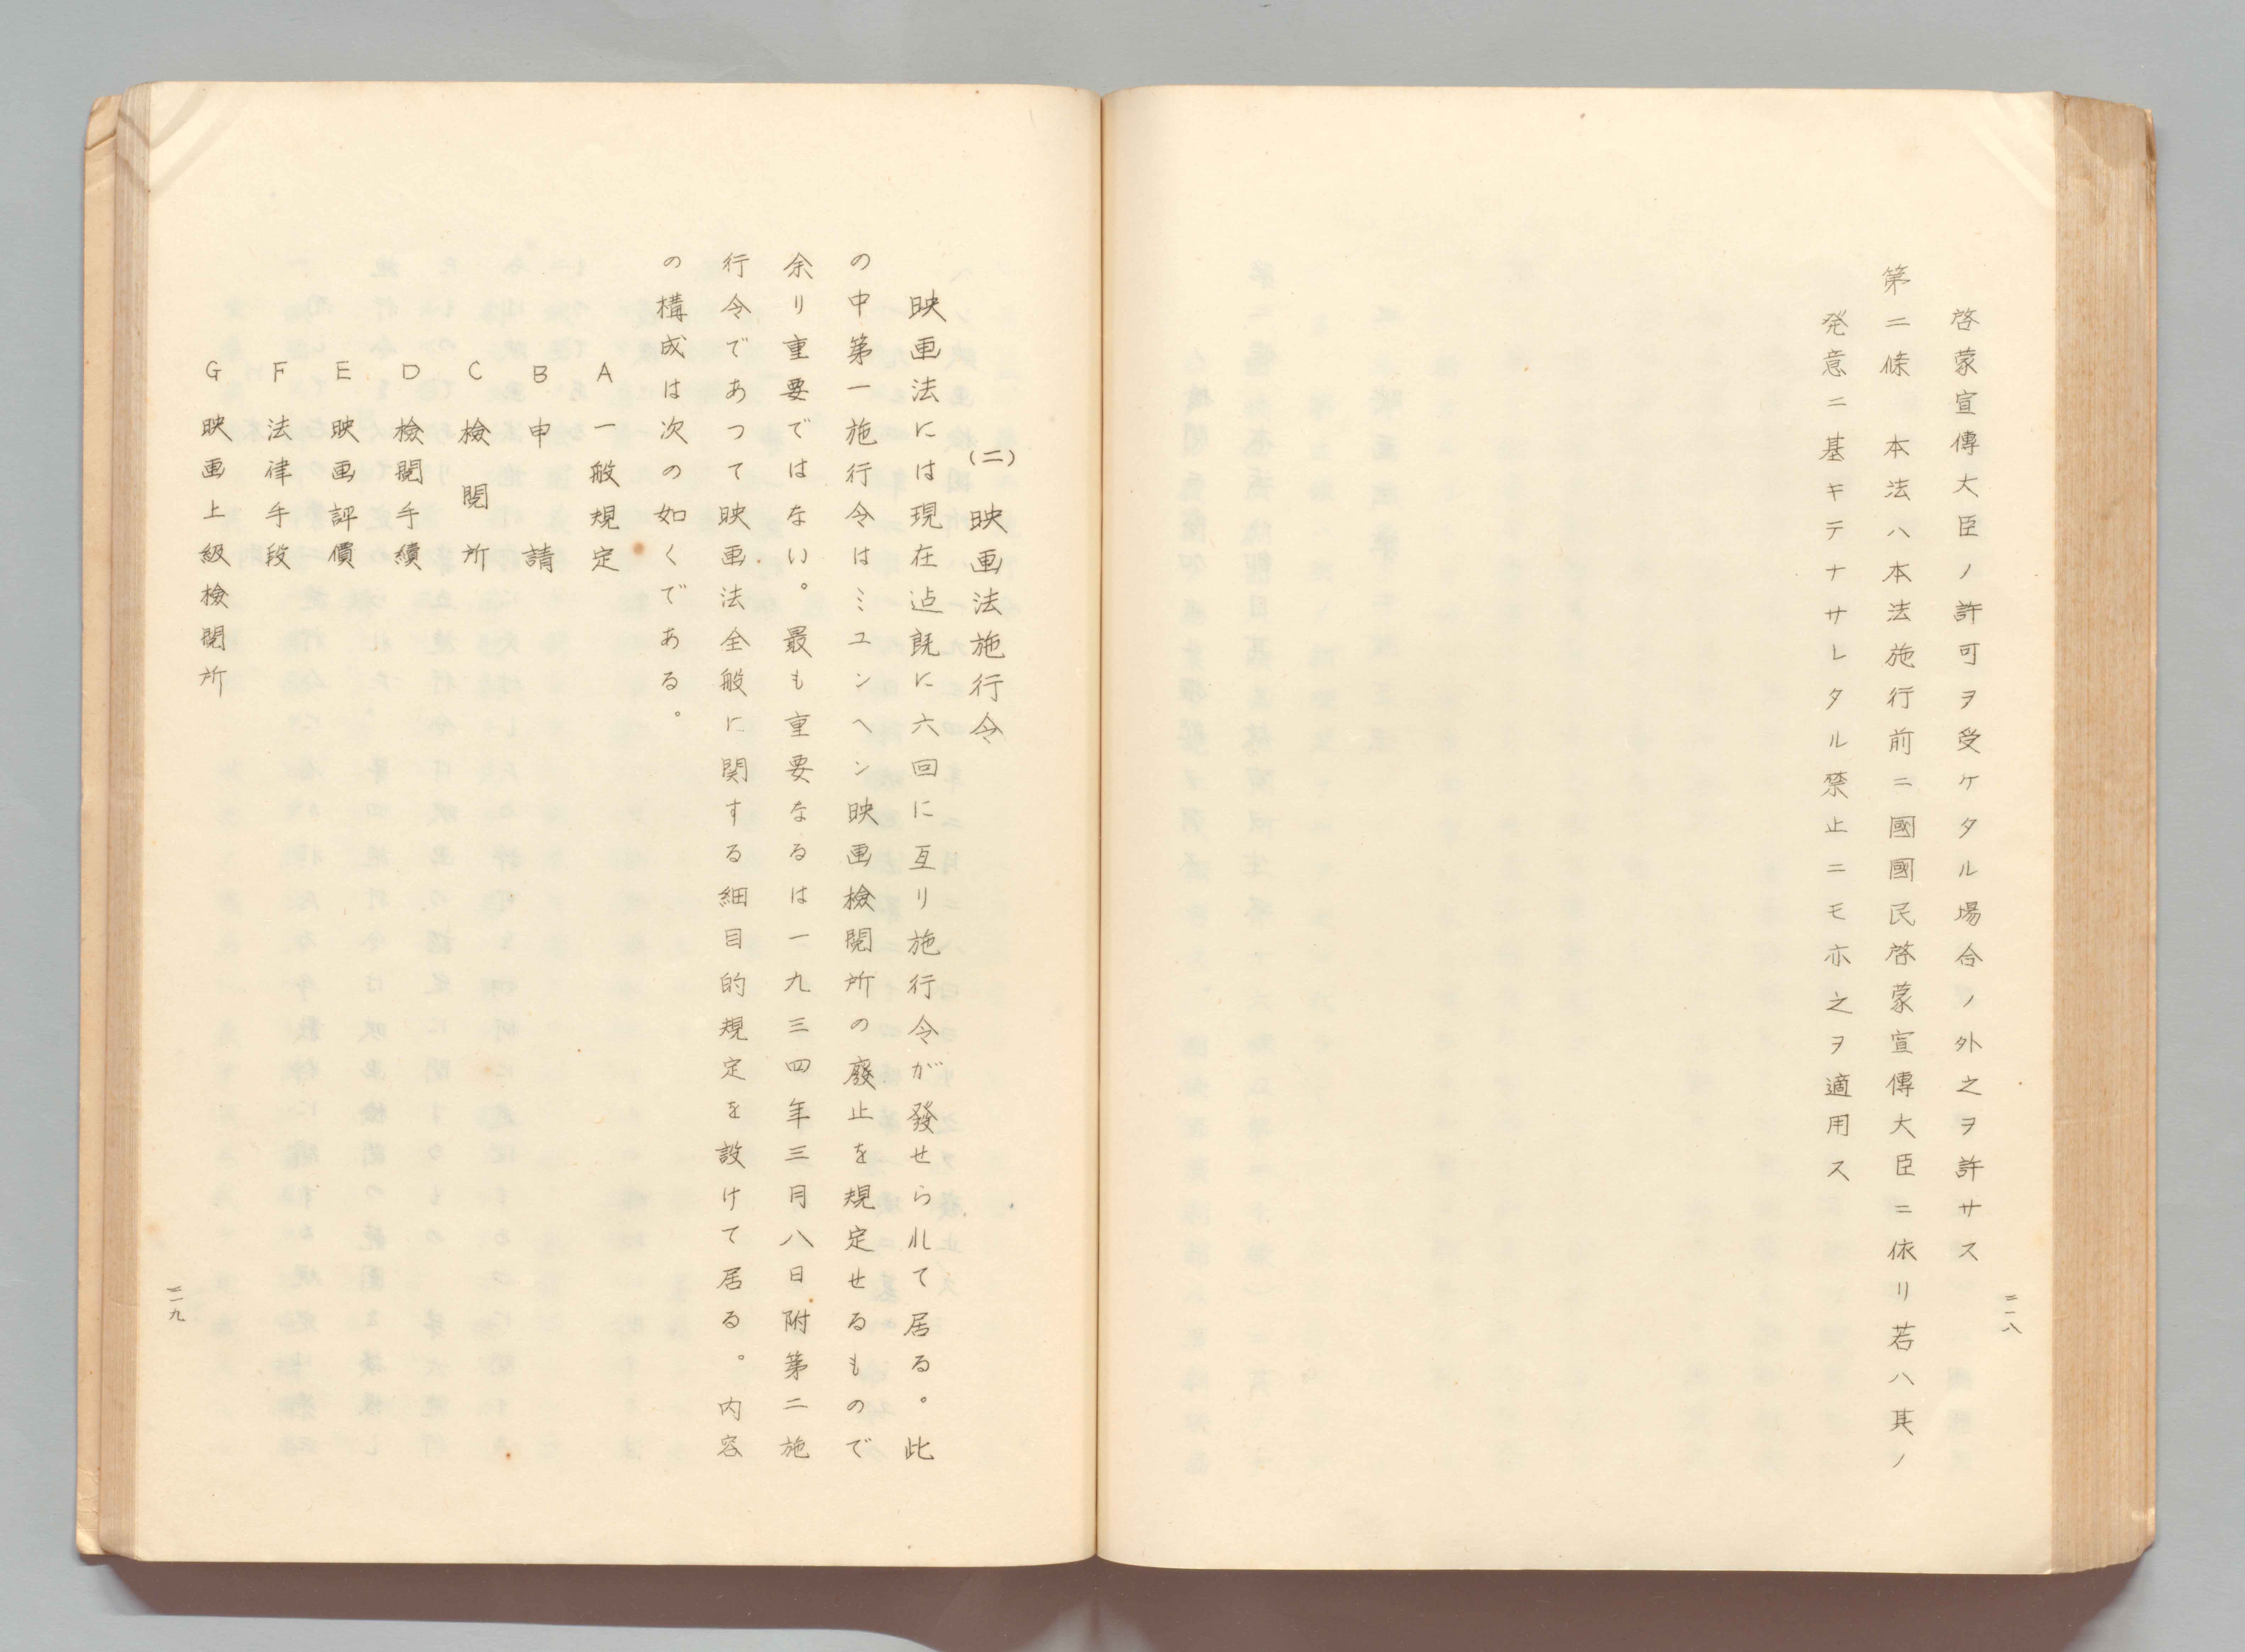 啓蒙宣傳大臣ノ許可ヲ受ケタル場合ノ外之ヲ許サス
第二條　本法ハ本法施行前ニ國國民啓蒙宣傳大臣ニ依リ若ハ其ノ
発意ニ基キテナサレタル禁止ニモ亦之ヲ適用ス
二一八
(二)　映画法施行令
映画法には現在迠既に六回に亙り施行令が發せられて居る。此
の中第一施行令はミユンヘン映画檢閲所の廢止を規定せるもので
余り重要ではない。最も重要なるは一九三四年三月八日附第二施
行令であつて映画法全般に関する細目的規定を設けて居る。内容
の構成は次の如くである。
A　一般規定
B　申請
C　檢閲所
D　檢閲手續
E　映画評價
F　法律手段
G　映画上級檢閲所
二一九